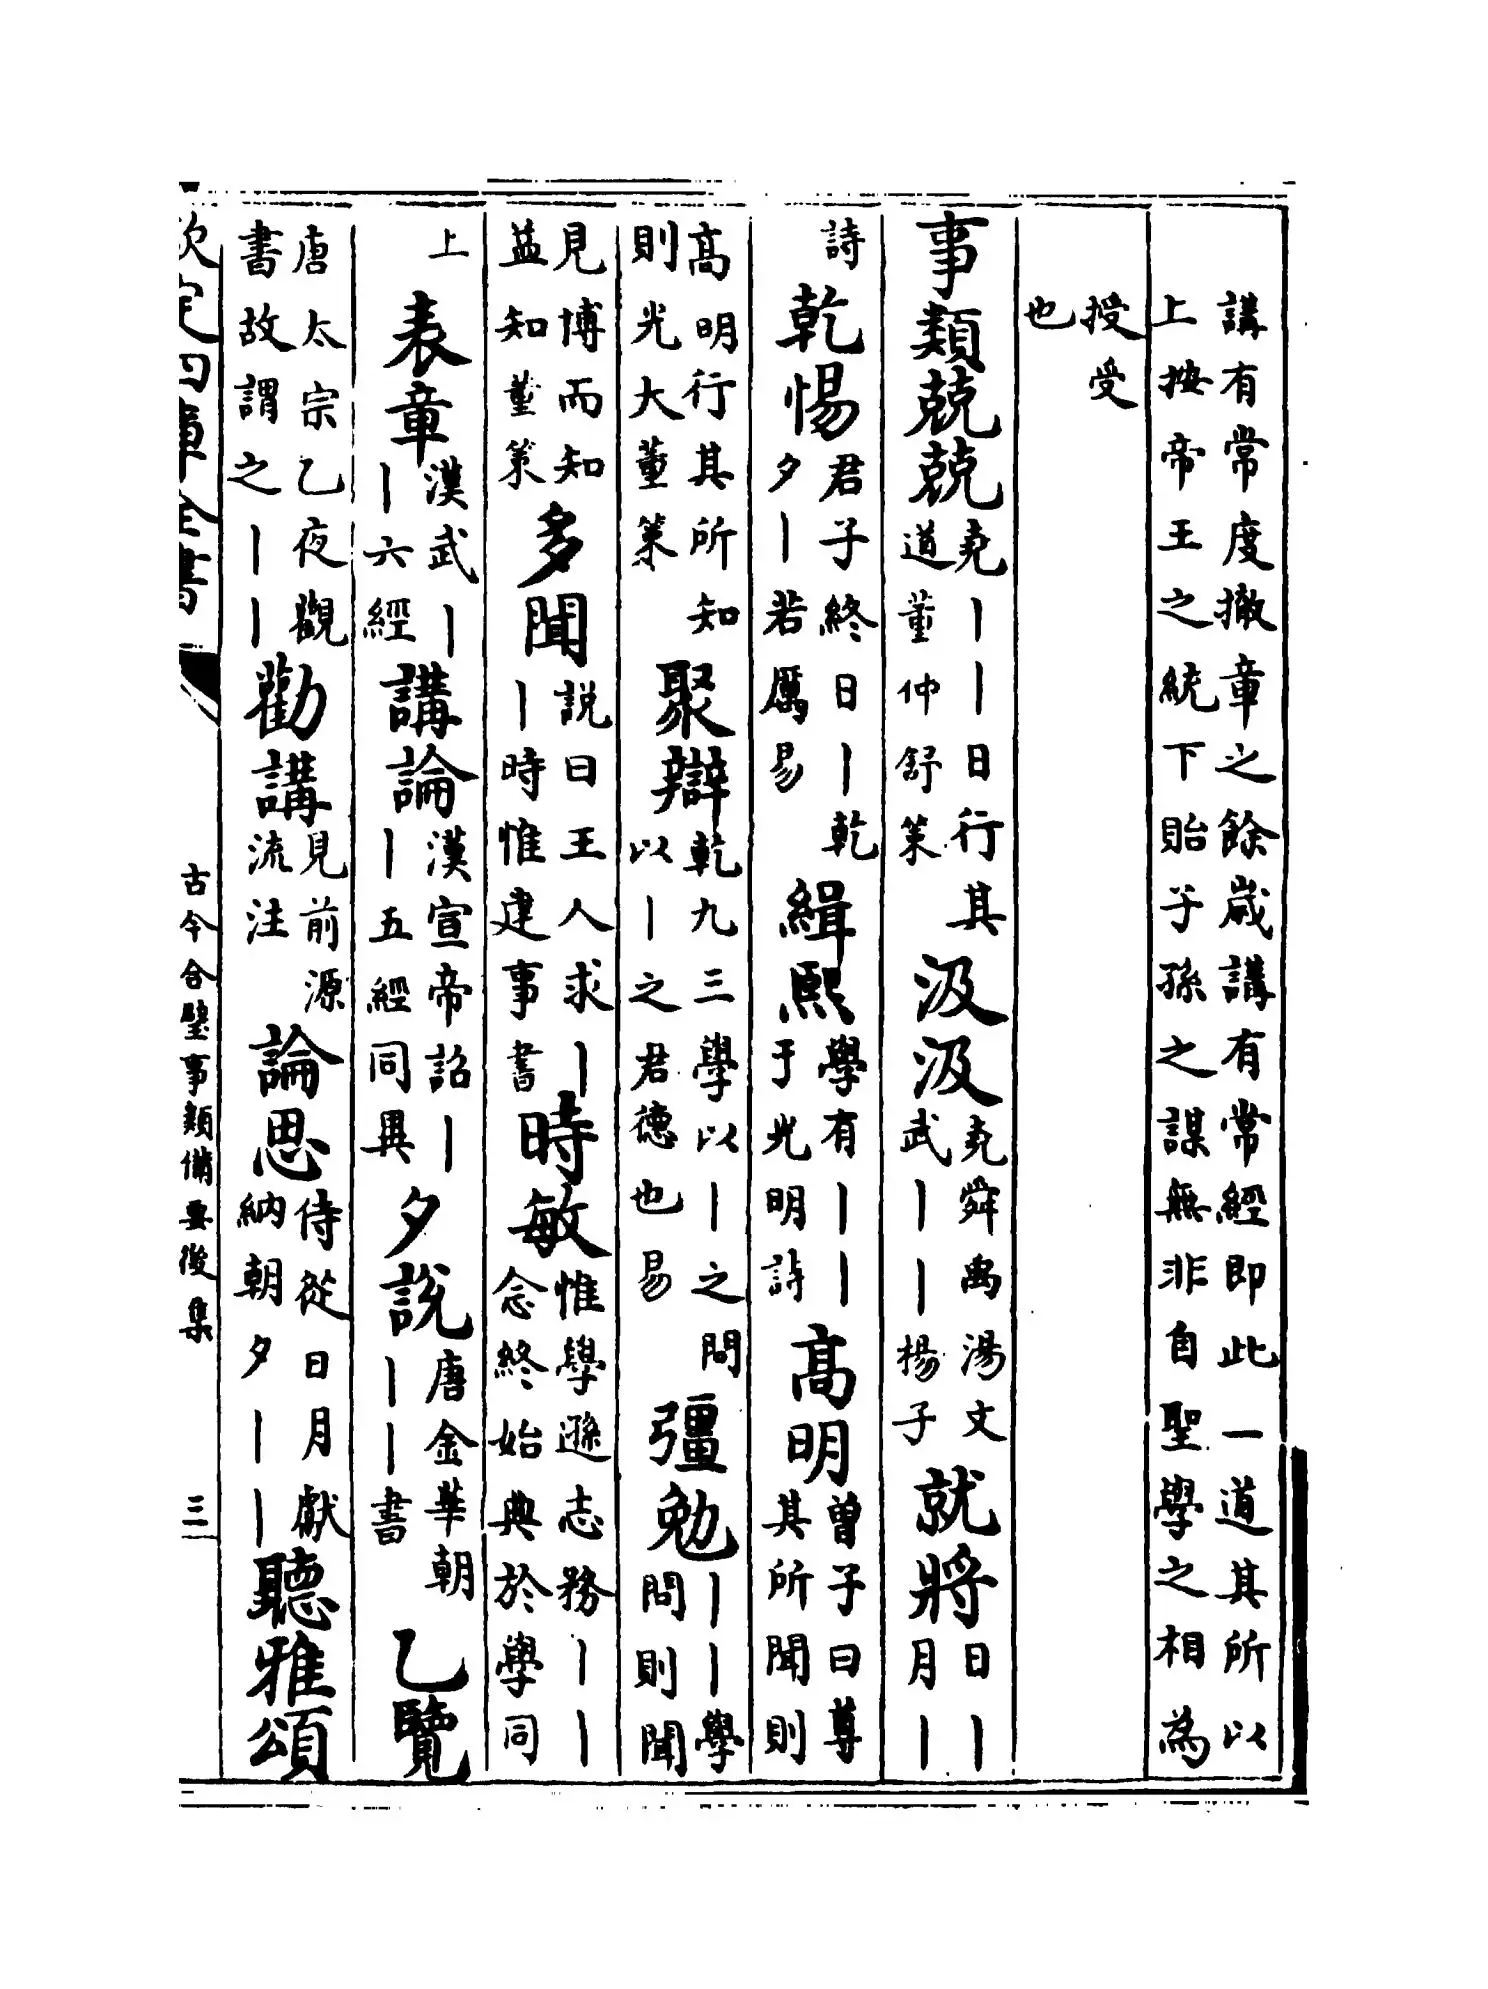 講有常度撤章之餘歲講有常經即此一道其所以
上按帝王之統下貽子孫之謀無非自聖學之相為
授受
也
事類兢兢堯丨丨日行其道董仲舒策汲汲堯舜禹湯文武丨丨楊子就將日丨月丨
詩乾惕君子終日丨乾夕丨若厲易緝熙學有丨丨于光明詩高明曾子曰尊其所聞則
高明行其所知則光大董策聚辯乾九三學以丨之問以丨之君德也易彊勉丨丨學問則聞
見博而知益知董策多聞説曰王人求丨丨時惟建事書時敏惟學遜志務丨丨念終始典於學同
上表章漢武丨丨六經講論漢宣帝詔丨丨五經同異夕說唐金華朝丨丨書乙覽
唐太宗乙夜觀書故謂之丨丨勸講見前源流注論思侍從日月獻納朝夕丨丨聽雅頌
欽定四庫全書
古今合璧事類備要後集
三